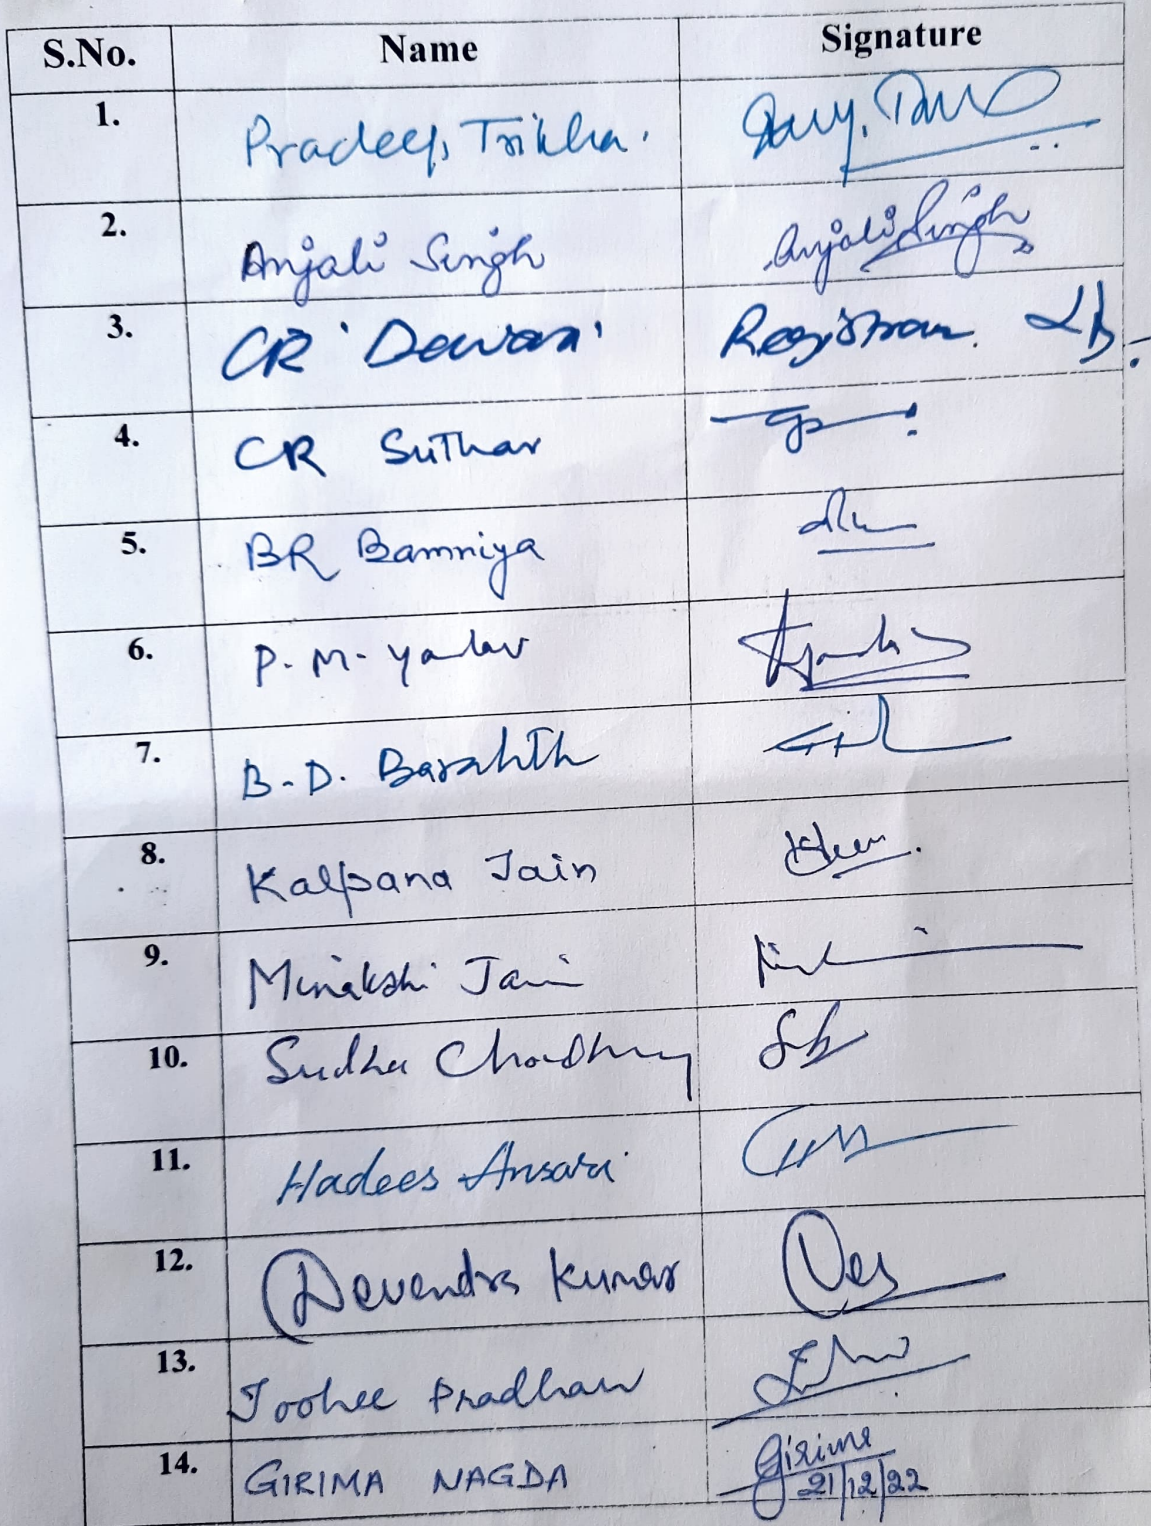 S.No. Name Signature
1. Pradeep Trikha.
2. Anjali Singh Anjali Singh
3. CR Dewasi Registrar
4. CR Suthar
5. BR Bamniya
6. P. M. Yadav
7. B. D. Barahth
8. Kalpana Jain
9. Minakshi Jain
10. Sudha Choudhary
11. Hadees Ansari
12. Devendra Kumar
13. Joohee Pradhan
14. GIRIMA NAGDA Girima
21/12/22